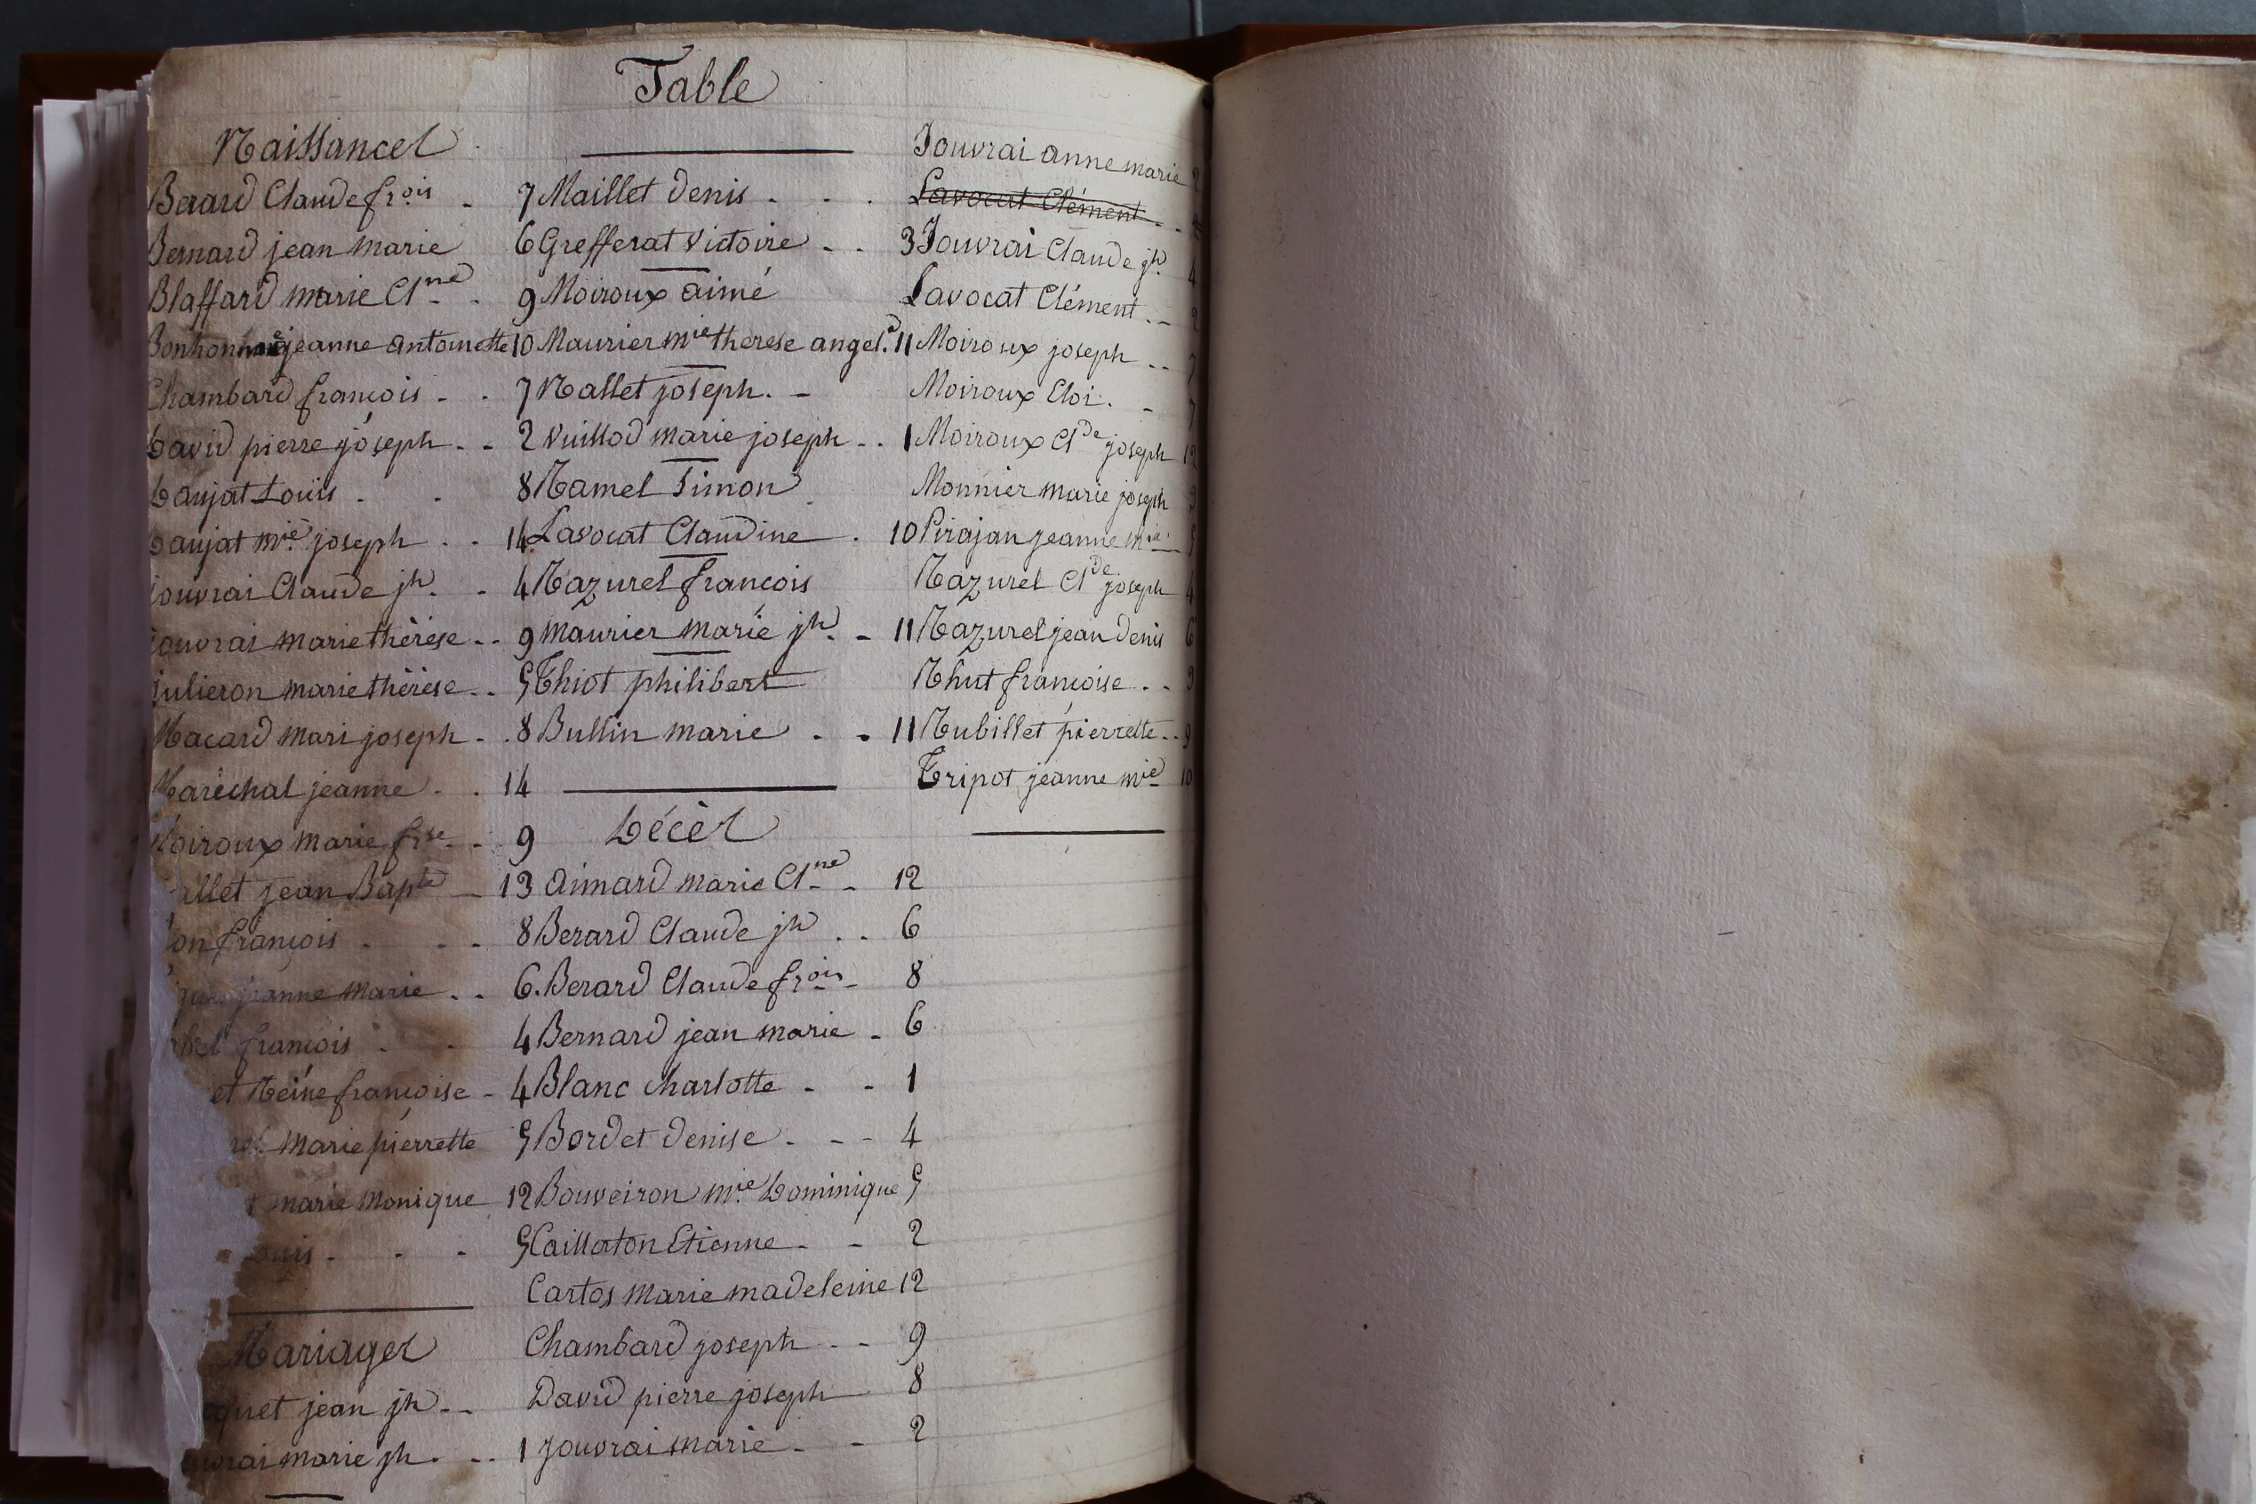 Table
Naissances
Berard Claude frois - 7
Bernard jean marie 6
Blaffard marie Clne - 9
jeanne antoinette 10
Chambard françois - - 7
David pierre joseph - - 2
Daujat Louis - - 8
Daujat mie joseph - - 14
jouvrai Claude jh - - 4
jouvrai marie thérèse - - 9
julieron marie thérèse - - 5
Macard mari joseph - - 8
Maréchal jeanne - - 14
Moiroux marie frse - - 9
allet jean Bapte - 13
françois - - - 8
jeanne marie - - 6
françois - - 4
et Reine françoise - 4
marie pierrette 5
marie monique 12
ouis - - - 5
Mariages
quet jean jh - -
vrai marie jh - - 1
Maillet denis - - -
Grefferat Victoire - - 3
Moiroux aimé
Maurier mie therese angel. 11
Rallet joseph. -
Vuillod marie joseph - - 1
Ramel Simon
Lavocat Claudine - 10
Razurel françois
maurier marie jh - - 11
Thiot philibert
Bullin marie - - 11
Décès
aimard marie Clne - 12
Berard Claude jh - - 6
Berard Claude frois - 8
Bernard jean marie - 6
Blanc charlotte - - 1
Bordet denise - - - 4
Bouveiron mie Dominique 5
Caillaton Etienne - - 2
Cartos marie madeleine 12
Chambard joseph - - 9
David pierre joseph 8
jouvrai marie - - 2
Jouvrai anne marie 2
Lavocat Clément - -
Jouvrai Claude jh 4
Lavocat Clément - - 2
Moiroux joseph - - 7
Moiroux Eloi. - 7
Moiroux Clde joseph 12
Monnier marie joseph 9
Pirajan jeanne mie
Razurel Clde joseph 4
Razurel jean denis 6
Rhut françoise - - 9
Rubillet pierrette - - 9
Tripot jeanne mie 10